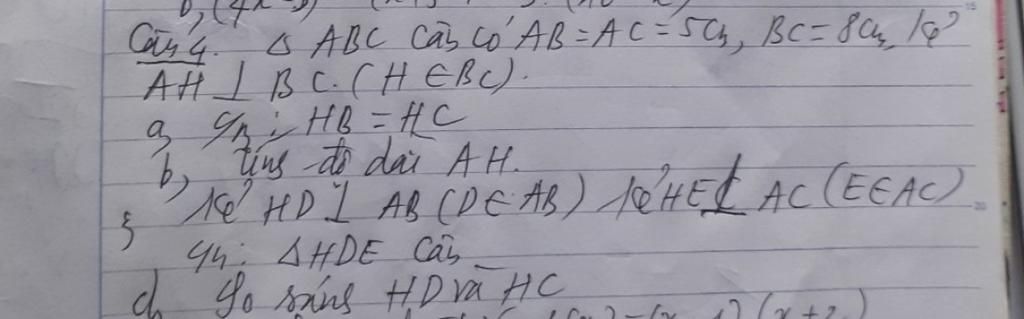 b, (4x-
Câu 4. Δ ABC cân có AB = AC = 5cm, BC = 8cm, Kẻ
AH ⊥ BC. (H ∈ BC).
a, CM: HB = HC
b, Tính độ dài AH.
c, Kẻ HD ⊥ AB (D ∈ AB) Kẻ HE ⊥ AC (E ∈ AC)
CM: Δ HDE cân
d, So sánh HD và HC
(x+2)